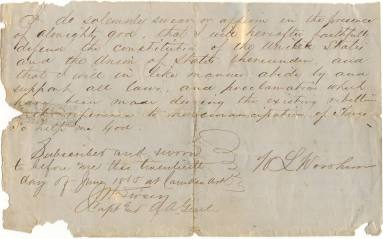 I do solemnly swear or affirm in the presence
of almighty god, that I will hereafter faithfully
defend the constitution of the United States
and the Union of States thereunder and
that I will in like manner abide by and
support all laws and proclamation which
have been made during the existing rebellion
with reference to the emancipation of Slaves
So help me God.
Subscribed and sworn
to before me this twentieth
day of June 1865 at Camden Ark
W L
Capt